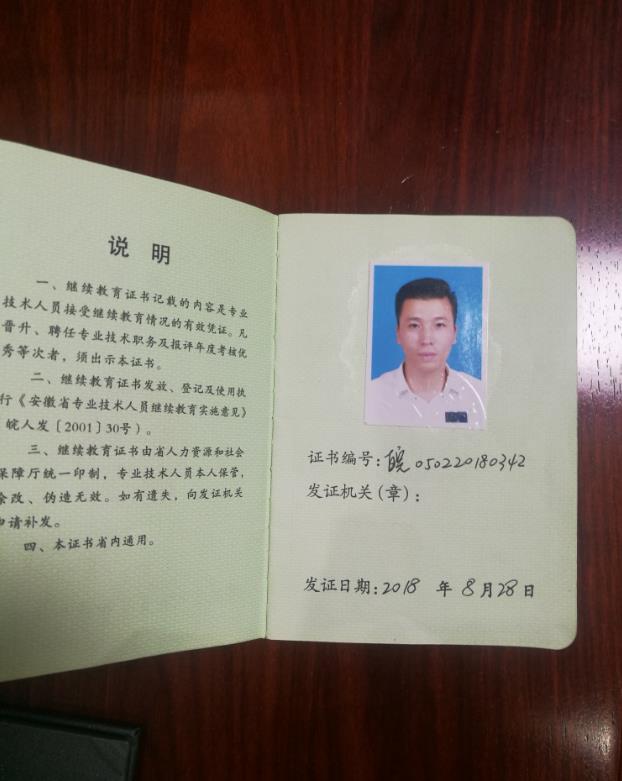 说 明
一、继续教育证书记载的内容是专业
技术人员接受继续教育情况的有效凭证。凡
晋升、聘任专业技术职务及报评年度考核优
秀等次者，须出示本证书。
二、继续教育证书发放、登记及使用执
行《安徽省专业技术人员继续教育实施意见》
皖人发〔2001〕30号）。
三、继续教育证书由省人力资源和社会
保障厅统一印制，专业技术人员本人保管，
涂改、伪造无效。如有遗失，向发证机关
申请补发。
四、本证书省内通用。
证书编号：皖050220180342
发证机关（章）：
发证日期：2018 年 8月28日